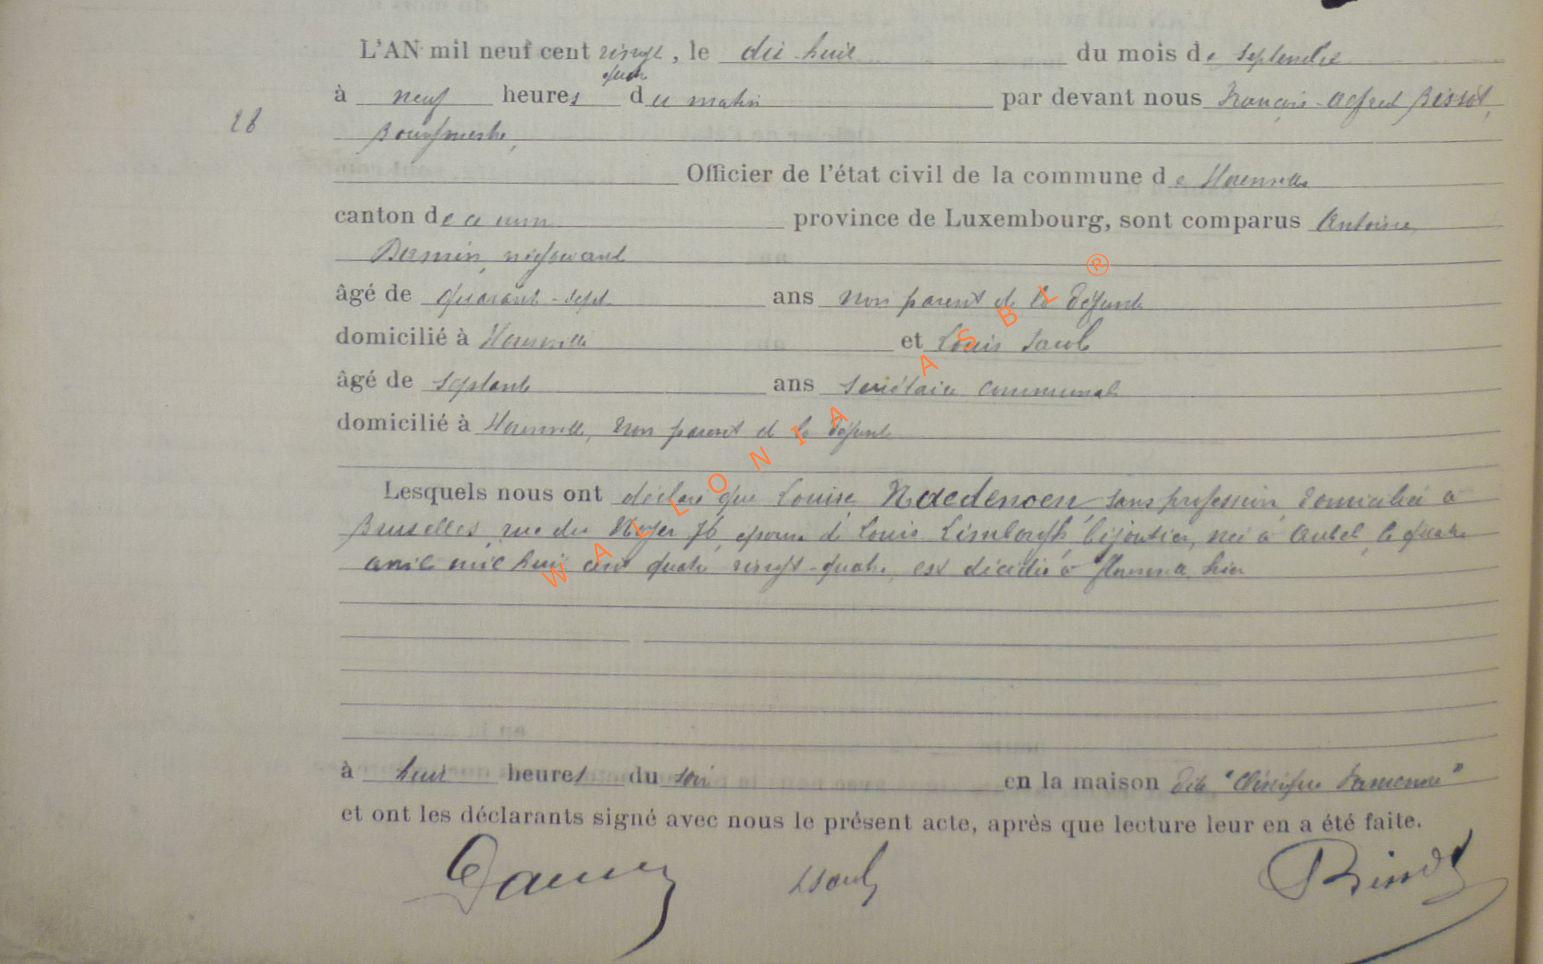 L'AN mil neuf cent vingt quatre, le dix huit du mois de septembre
à neuf heures du matin par devant nous François-Alfred Bissot,
28
Bourgmestre,
Officier de l'état civil de la commune de
canton de province de Luxembourg, sont comparus Antoine
négociant
âgé de quarante-sept ans non parent de la défunte
domicilié à et Louis Jacob
âgé de septante ans secrétaire communal
domicilié à non parent de la défunte
Lesquels nous ont déclaré que Louise Naedenoen, sans profession, domiciliée à
Bruxelles, rue du Noyer 76, épouse de Louis Limbourgh, bijoutier, née à Aubel, le quatre
avril mil huit cent quatre vingt-quatre, est décédée à hier
à huit heures du soir en la maison dite "Clinique Famenne"
et ont les déclarants signé avec nous le présent acte, après que lecture leur en a été faite.
LJacob Bissot
WALLONIA ASBL ®